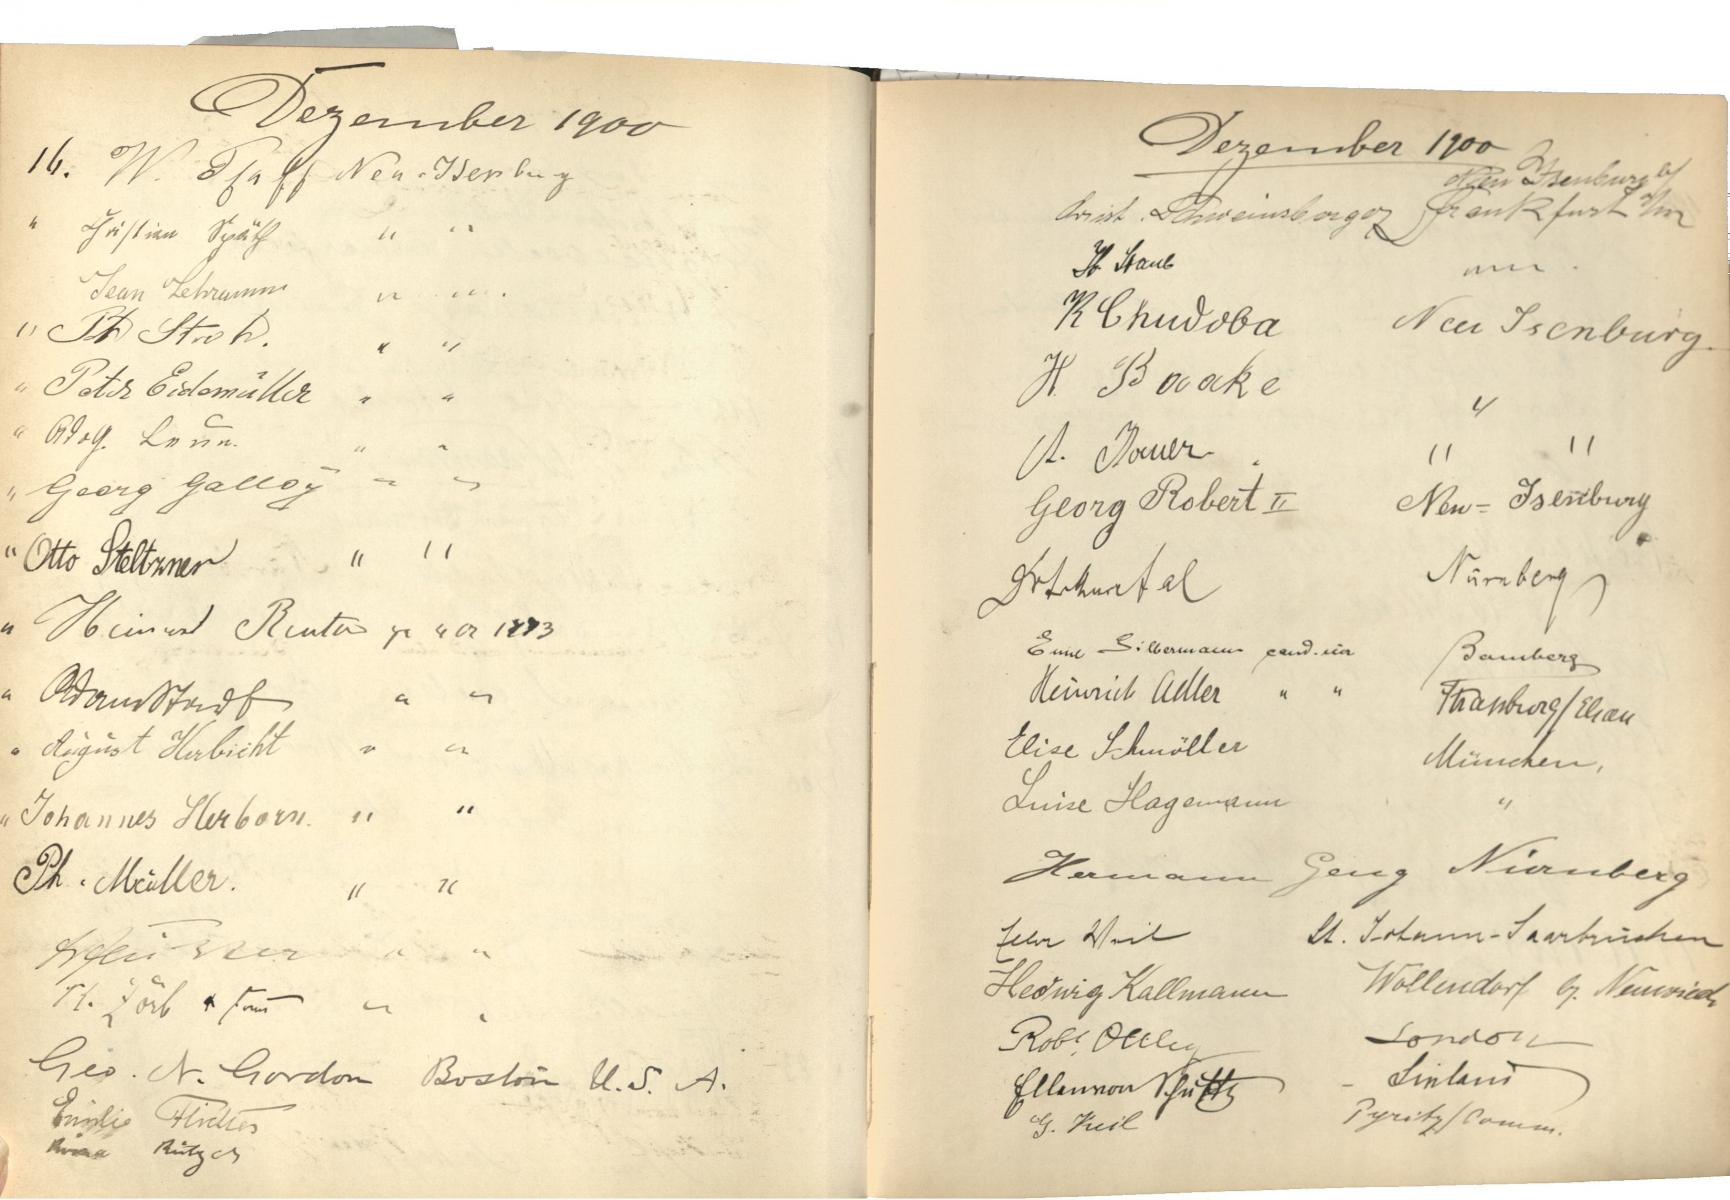 Dezember 1900
16. W. Pfaff Neu-Isenburg
" Christian Späth " "
Jean Lehrmann " "
" Ph Stroh. " "
" Peter Eidemüller " "
" Adolf " "
" Georg Galloÿ " "
" Otto Steltzner " "
" Heinrich Reuter
" Adam Stadt " "
" August Herbicht " "
" Johannes Herborn. " "
Ph. Müller. " "
" "
Zörb " "
Geo. N. Gordon Boston U. S. A.
Emilie
Dezember 1900
Neu Isenburg b/
Christ. Schweinsberger Frankfurt a/m
H Staub " "
K Chudoba Neu Isenburg.
H. Baake "
A. " "
Georg Robert II Neu-Isenburg
Nürnberg
Emil Silbermann cand. iur Bamberg
Heinrich Adler " " Straßburg/Elsass
Elise Schmöller München,
Luise Hagemann "
Hermann Geng Nürnberg
Weil St. Johann-Saarbrücken
Hedwig Kallmann Wollendorf b. Neuwied
Robt. Ottley London
Ellen von Schultz - Finland
G. Keil Pyritz/Pomm.